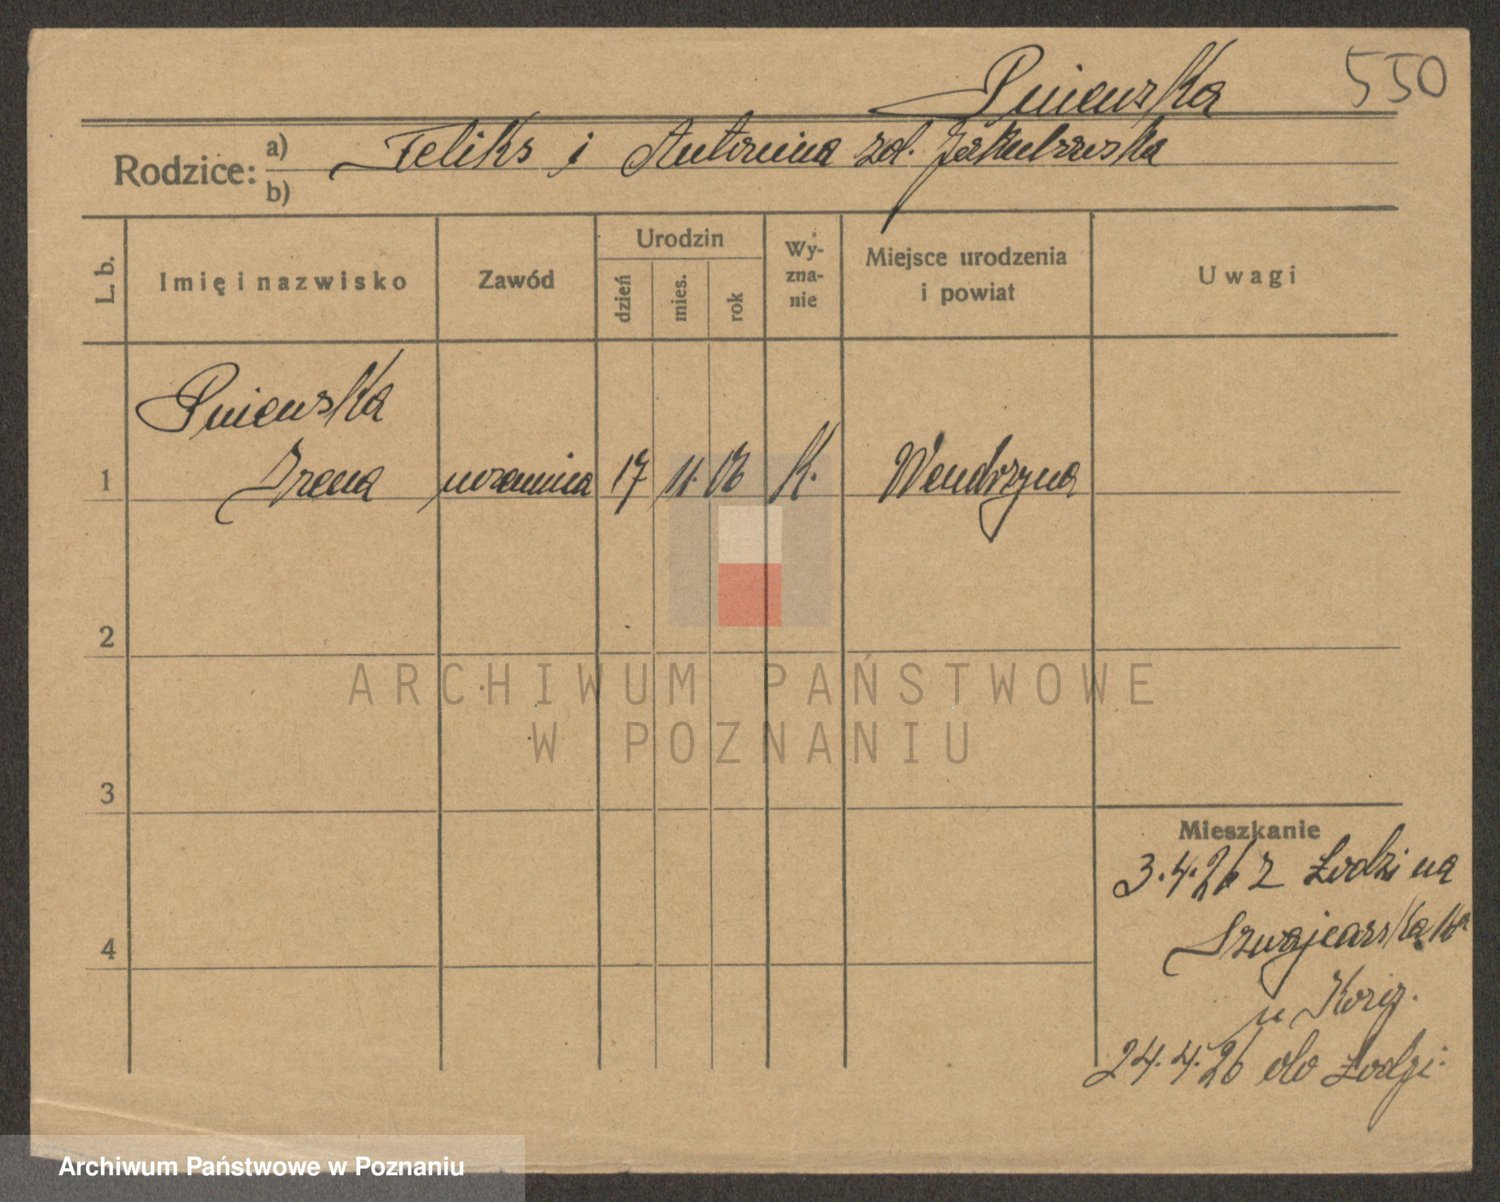 Pniewska 550
Rodzice: a) Feliks i Antonina zd. Jakubowska
b)
L. b. Imię i nazwisko Zawód Urodzin dzień mies. rok Wy-zna-nie Miejsce urodzenia i powiat Uwagi
Pniewska
1 Irena 17 11. 06 K. Wendrzyna
2
ARCHIWUM PAŃSTWOWE
W POZNANIU
3
Mieszkanie
3.4.26 z Łodzi na
4 Szwajcarska
u
24.4.26 do Łodzi.
Archiwum Państwowe w Poznaniu